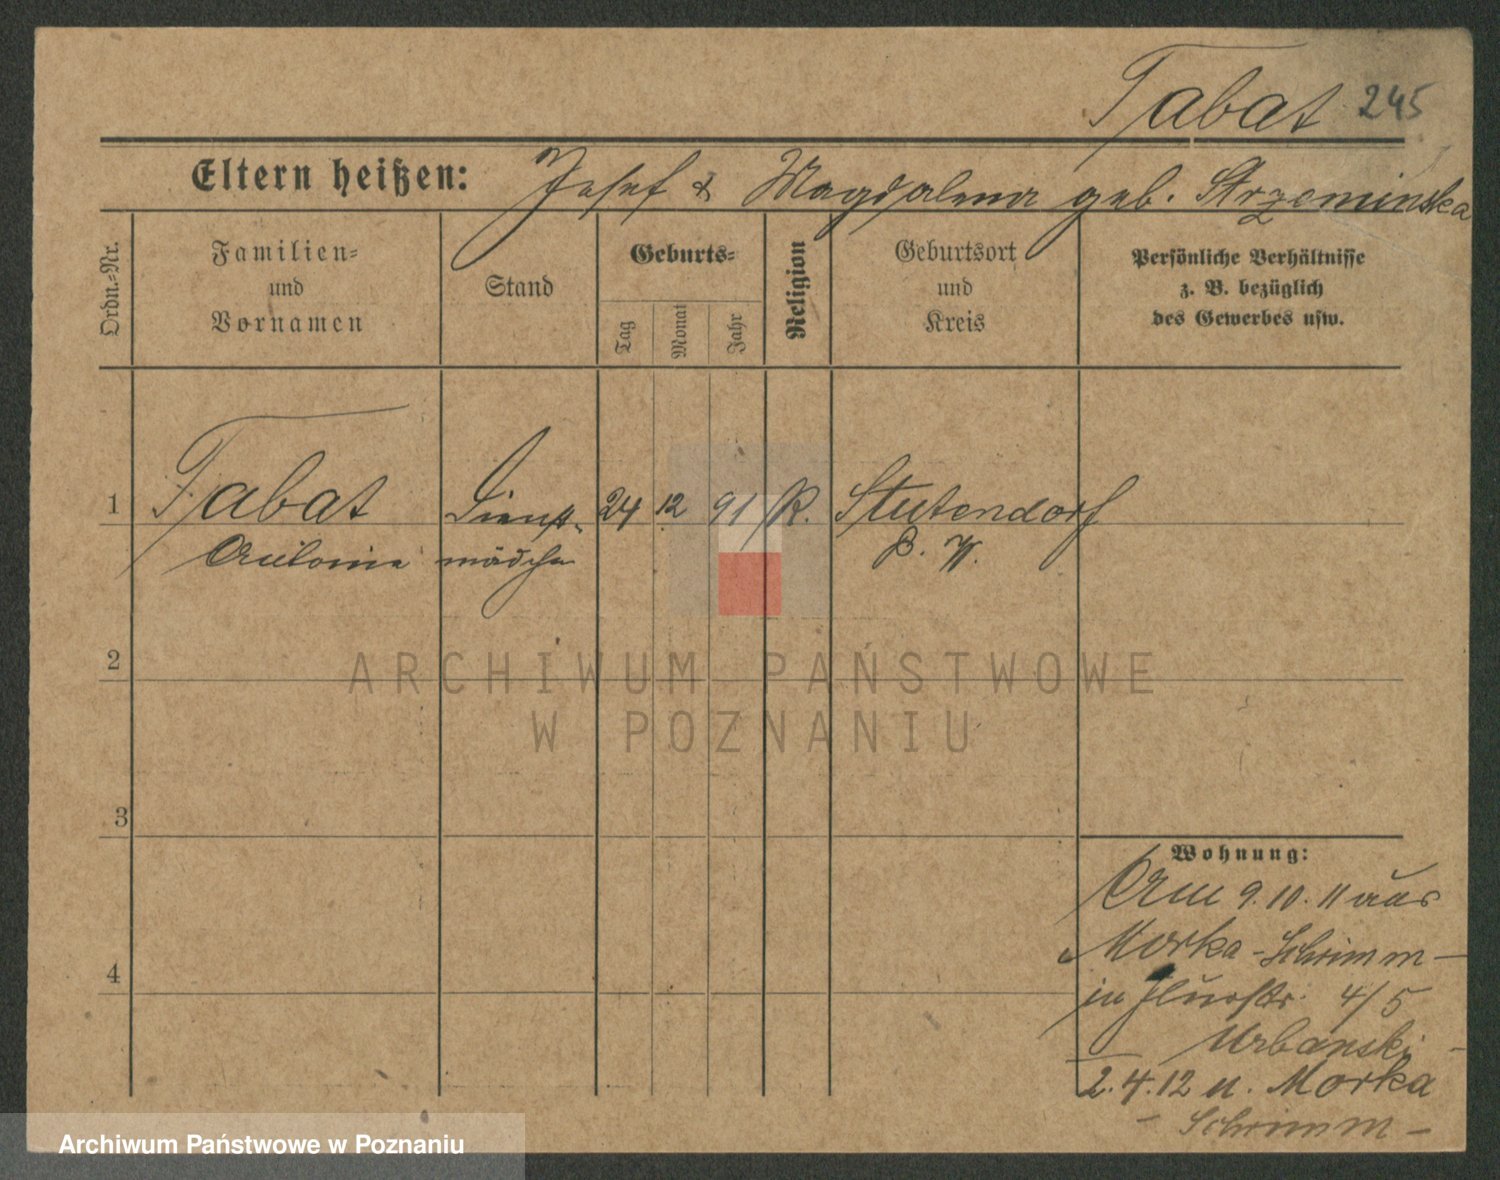 Tabat 245
Eltern heißen: Josef & Magdalena geb. Strzeminska
Ordn.-Nr.
Familien-
und
Vornamen
Stand
Geburts-
Tag
Monat
Jahr
Religion
Geburtsort
und
Kreis
Persönliche Verhältnisse
z. B. bezüglich
des Gewerbes usw.
1 Tabat Dienst- 24 12 91 K. Stutendorf
Antonie mädchen
2
3
4
Wohnung:
Am 9. 10. 11 aus
Morka - Schrimm -
in 4/5
Urbanski -
2. 4. 12 n. Morka
- Schrimm -
ARCHIWUM PAŃSTWOWE
W POZNANIU
Archiwum Państwowe w Poznaniu